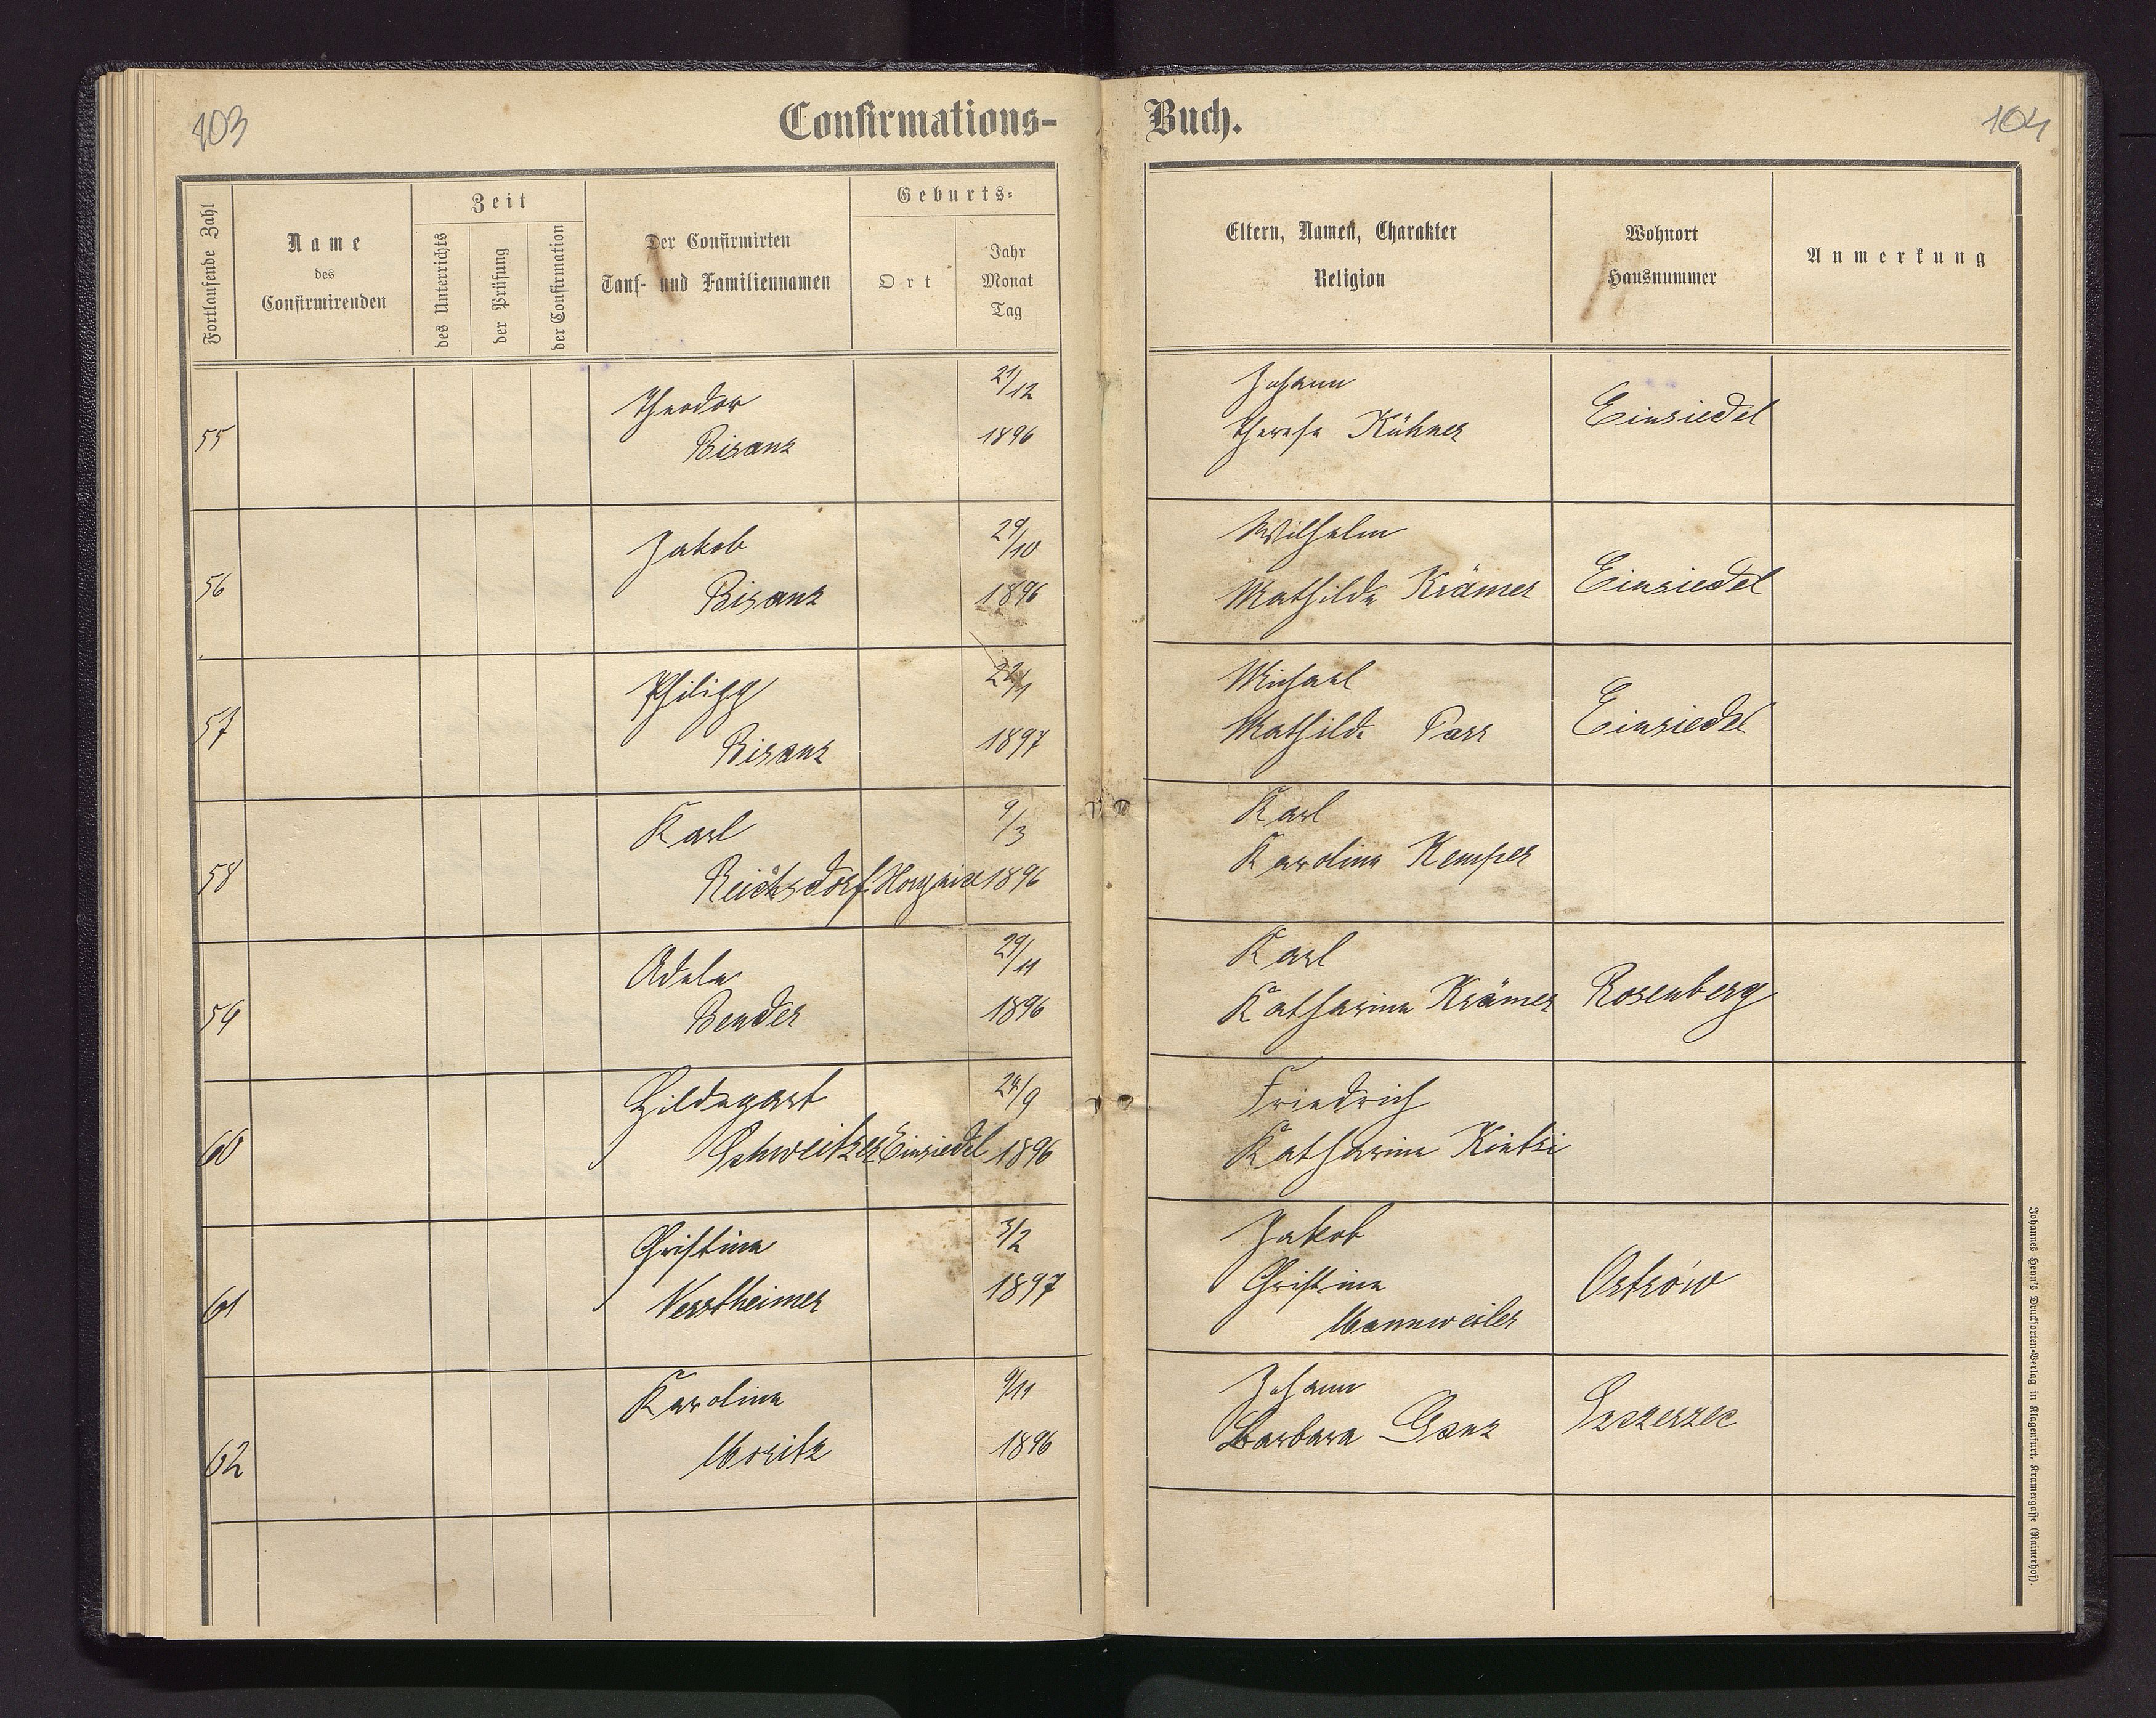 103
Confirmations-
Buch.
104
Fortlaufende Zahl
Name
des
Confirmirenden
Zeit
des Unterrichts
der Prüfung
der Confirmation
Der Confirmirten
Tauf- und Familiennamen
Geburts-
Ort
Jahr
Monat
Tag
Eltern, Namen, Charakter
Religion
Wohnort
Hausnummer
Anmerkung
55
Theodor
Bisanz
21/12
1896
Johann
Therese Kühner
Einsiedel
56
Jakob
Bisanz
29/10
1896
Wilhelm
Mathilde Krämer
Einsiedel
57
Philipp
Bisanz
22/1
1897
Michael
Mathilde Parr
Einsiedel
58
Karl
Reichsdorf
9/3
1896
Karl
Karolina Kemper
59
Adele
Bender
29/11
1896
Karl
Katharina Krämer
Rosenberg
60
Hildegart
Schweitzer
Einsiedel
24/9
1896
Friedrich
Katharina Kintzi
61
Christina
Verstheimer
3/2
1897
Jakob
Christina
Mannweiler
Ostrów
62
Karolina
Moritz
9/11
1896
Johann
Barbara Ganz
Szczerzec
Johannes Heyn's Drucksorten-Verlag in Klagenfurt, Kramergasse (Rainerhof).